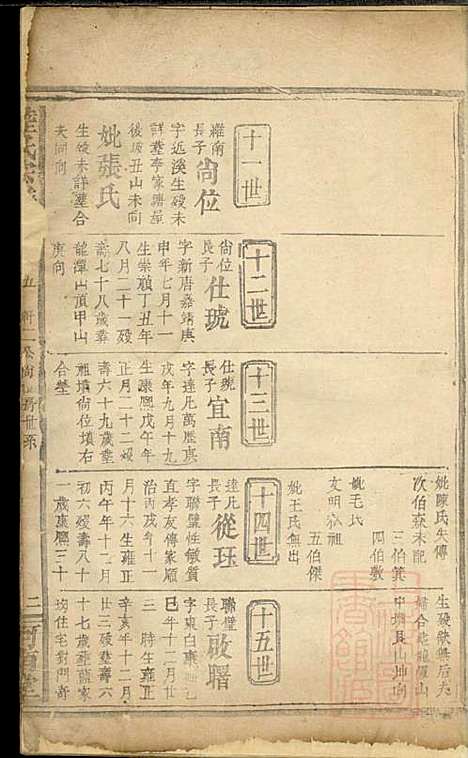 十一世
維甫
長子
尚位
字近溪生歿未
詳葬李家壠屋
後坡丑山未向
妣張氏
生歿未詳葬合
夫同向
十二世
尚位
長子
仕琥
字新唐嘉靖庚
申年七月十一
生崇禎丁丑年
八月二十一歿
壽七十八歲葬
龍潭山頂甲山
庚向
十三世
仕琥
長子
宜南
字達凡萬歷庚
戌年九月十九
生康熙戊午年
正月二十二歿
壽六十九歲葬
祖墳尚位墳右
合塋
妣陳氏失傳
次伯森未記
三伯箕
四伯敷
妣毛氏
文明叔祖
五伯傑
妣王氏無出
十四世
達凡
長子
從珏
字聯璧性敏質
直孝友傳家順
治丙戌年十一
月十六生雍正
丙午年十二月
初六歿壽八十
一歲康熙三十
生歿缺無后夫
婦合葬龍羅山
中壠艮山坤向
十五世
聯璧
長子
啟曙
字東白康熙己
巳年十二月廿
三時生雍正
辛亥年十二月
廿二歿壽六
十七歲葬龍家
坳住宅對門寄
五
二